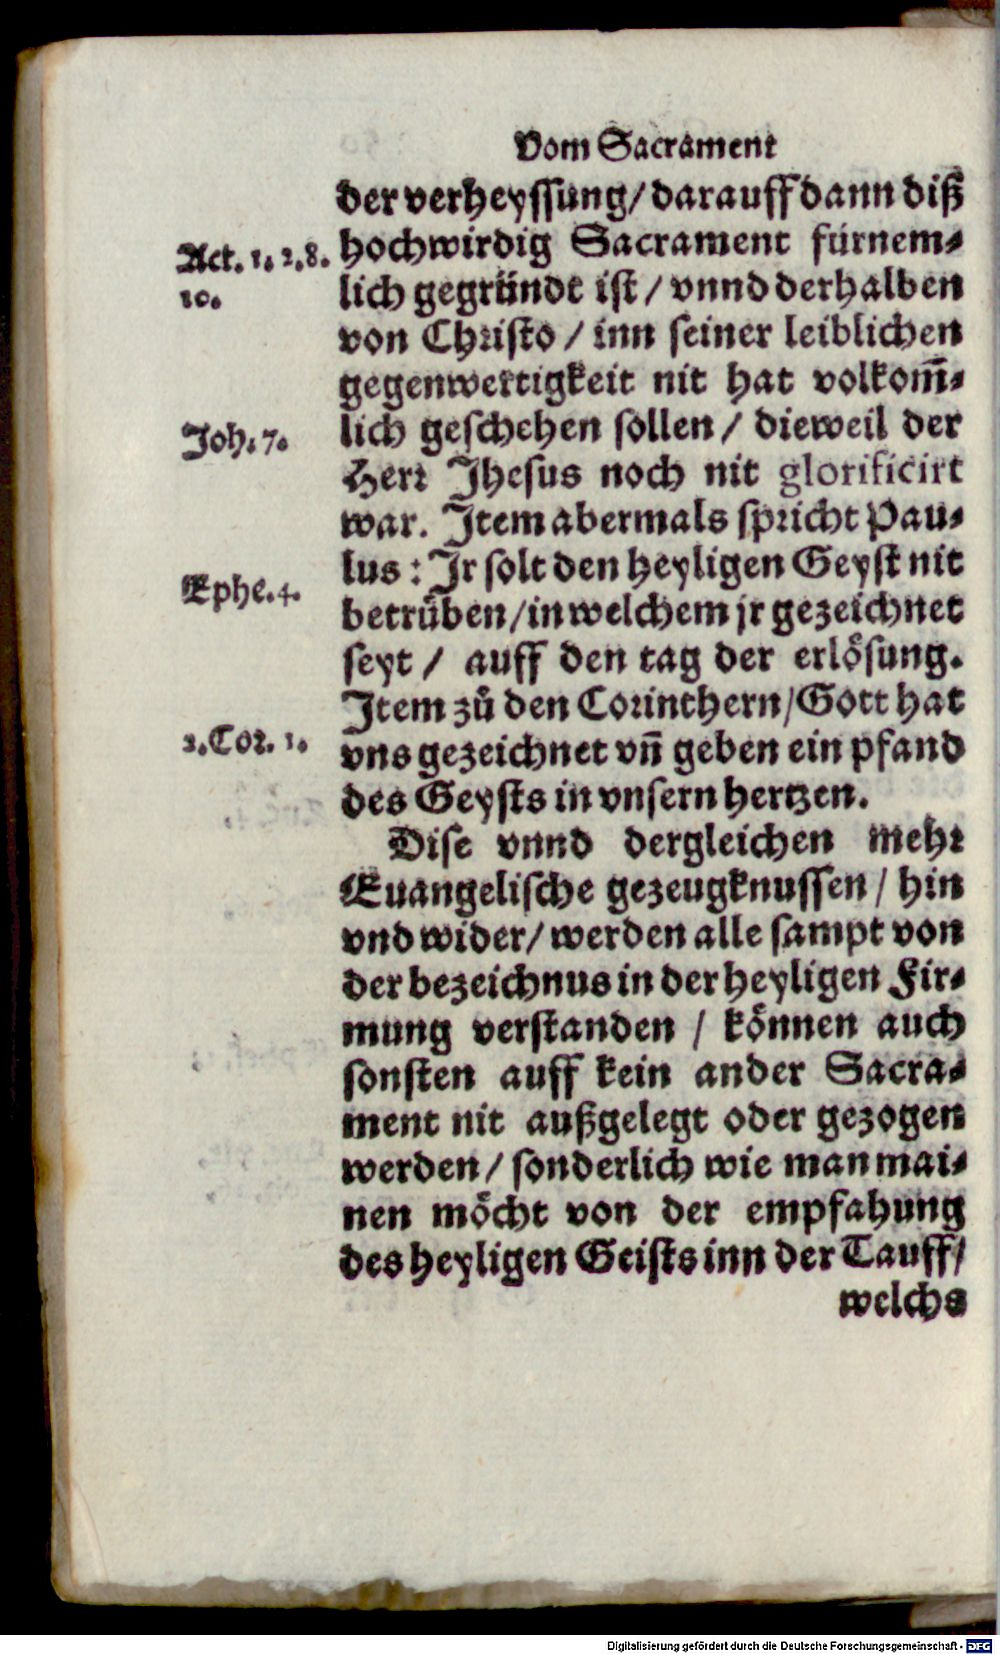 Vom Sacrament
der verheyssung/ darauff dann diß
Act. 1. 2. 8.
10.
hochwirdig Sacrament fürnem⸗
lich gegründt ist / vnnd derhalben
von Christo / inn seiner leiblichen
gegenwertigkeit nit hat volkom̄⸗
Joh. 7.
lich geschehen sollen / dieweil der
Herr Jhesus noch nit glorificirt
war. Item abermals spricht Pau⸗
lus : Ir solt den heyligen Geyst nit
Ephe. 4.
betrüben/ in welchem jr gezeichnet
seyt / auff den tag der erlösung.
Item zů den Corinthern/ Gott hat
2. Cor. 1.
vns gezeichnet vn̄ geben ein pfand
des Geysts in vnsern hertzen.
Dise vnnd dergleichen mehr
Euangelische gezeugknussen / hin
vnd wider/ werden alle sampt von
der bezeichnus in der heyligen Fir⸗
mung verstanden / können auch
sonsten auff kein ander Sacra⸗
ment nit außgelegt oder gezogen
werden / sonderlich wie man mai⸗
nen möcht von der empfahung
des heyligen Geists inn der Tauff/
welchs
Digitalisierung gefördert durch die Deutsche Forschungsgemeinschaft - DFG